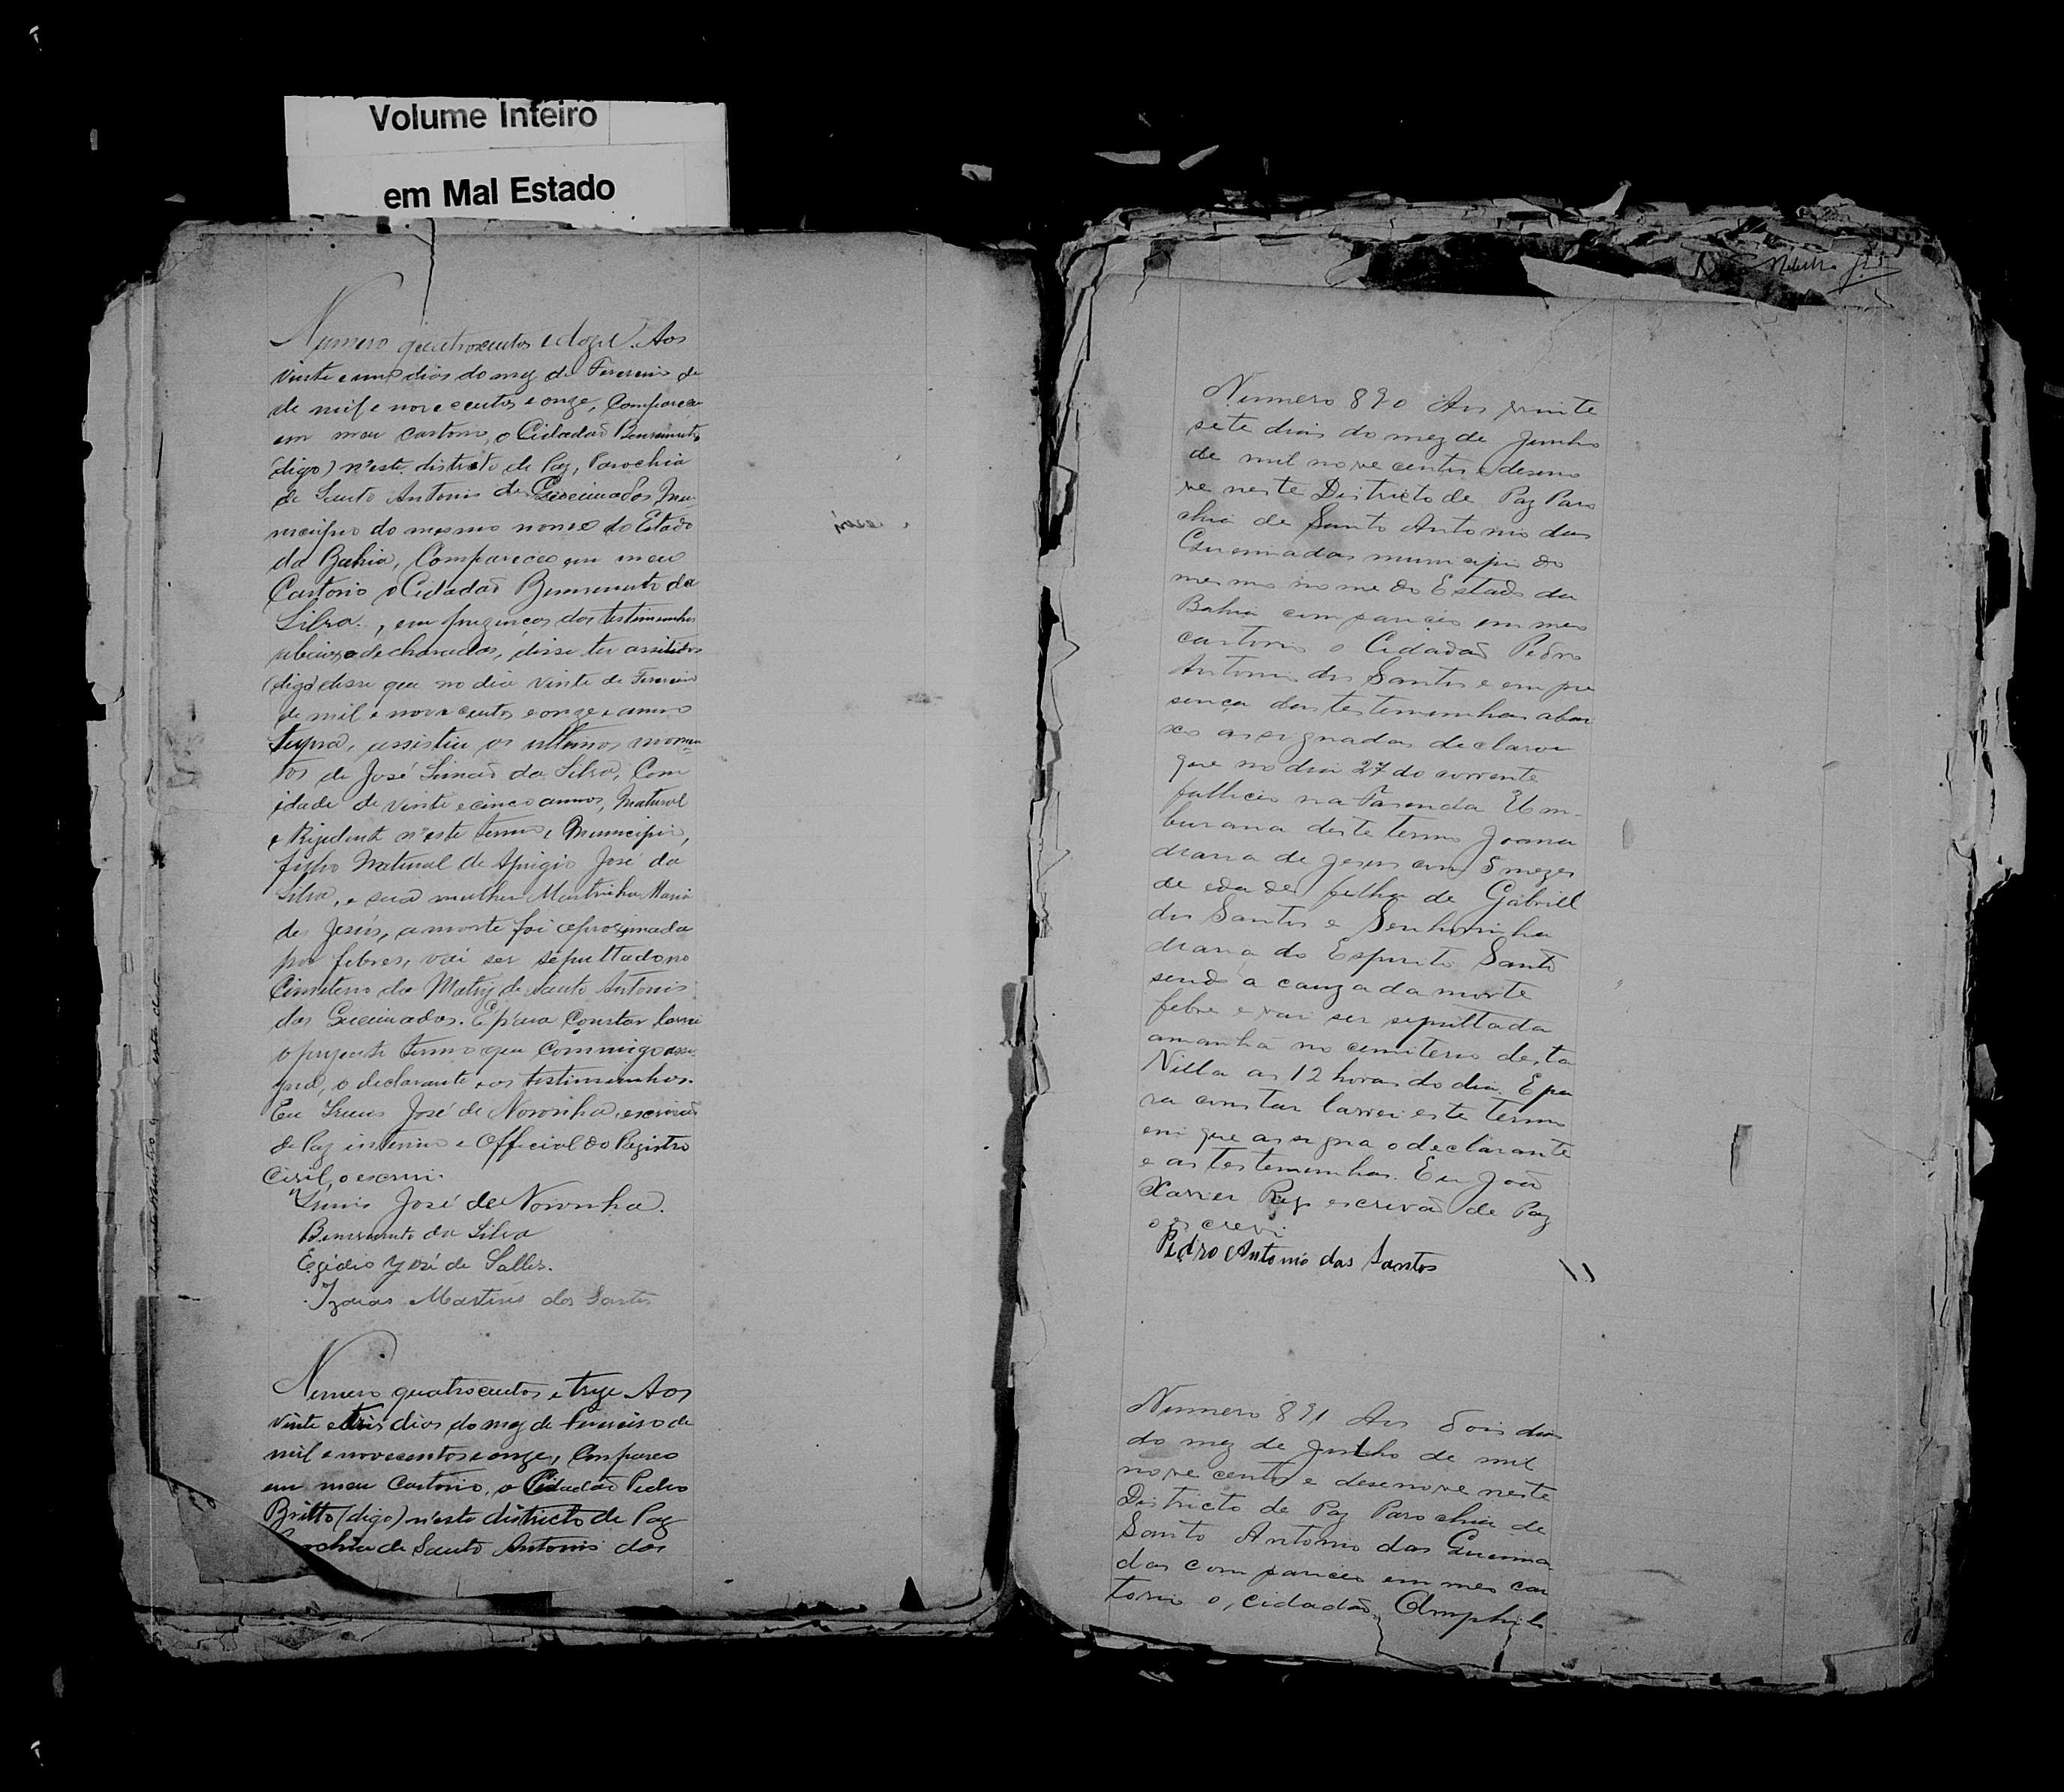 Volume Inteiro
em Mal Estado
Numero quatrocentos e doze. Aos
vinte e um dias do mez de Fevereiro de
de mil e nove centos e onze, Compareceu
em meu Cartorio, o Cidadão Benvenuto
(digo) n'este districto de Paz, Parochia
de Santo Antonio das Queimados, Mu-
nicipio do mesmo nome do Estado
da Bahia, Compareceo em meu
Cartorio o Cidadão Benvenuto da
Silva, em prezenças das testimunhas
abaixo declaradas, disse ter assistido
(digo) disse que no dia vinte de Fevereiro
de mil e nove centos e onze e anno
Supra, assistiu os ultimos momen
tos de José Simão da Silva, Com
idade de vinte e cinco annos, Natural
e Rezidente n'este termo e Municipio,
filho Natural de Aprigio José da
Silva, e sua mulher Maria
de Jesús, a morte foi aproximada
por febres, vai ser sepultado no
Cimiterio da Matriz de Santo Antonio
das Queimados. E para Constar lavrei
o prezente termo que commigo assi
gna, o declarante e os testimunhos.
Eu José de Noronha, escrivão
de Paz interino e Official do Registro
Civil, o escrevi.
José de Noronha.
Benvenuto da Silva
Egidio José de Salles.
Izaias Martins dos Santos
Numero quatrocentos e treze Aos
vinte e tres dias do mez de Fevereiro de
mil e novecentos e onze, Compareceo
em meu Cartorio, o Cidadão Pedro
Britto (digo) n'este districto de Paz
Parochia de Santo Antonio das
Numero 890 Aos vinte
sete dias do mez de Junho
de mil nove centos e deseno
ve neste Districto de Paz Paro
chia de Santo Antonio das
Queimadas municipio do
mesmo nome do Estado da
Bahia compareceo em meo
cartorio o Cidadão Pedro
Antonio dos Santos e em pre
sença das testemunhas abai
xo assignadas declarou
que no dia 27 do corrente
falleceo na Fasenda Um-
burana deste termo Joanna
Maria de Jesus com 8 mezes
de edade filha de Gabriel
dos Santos e Senhorinha
Maria do Espirito Santo
sendo a cauza da morte
febre e vai ser sepultada
amanhã no cemiterio desta
Villa as 12 horas do dia. E pa
ra constar lavrei este termo
em que assigna o declarante
e as testemunhas. Eu João
Xavier Reys escrivão de Paz
o escrevi.
Pedro Antonio dos Santos
Numero 891 Aos dois dias
do mez de Julho de mil
nove centos e desenove neste
Districto de Paz Parochia de
Santo Antonio das Queima-
das compareceo em meo car
torio o, cidadão, Amphilo